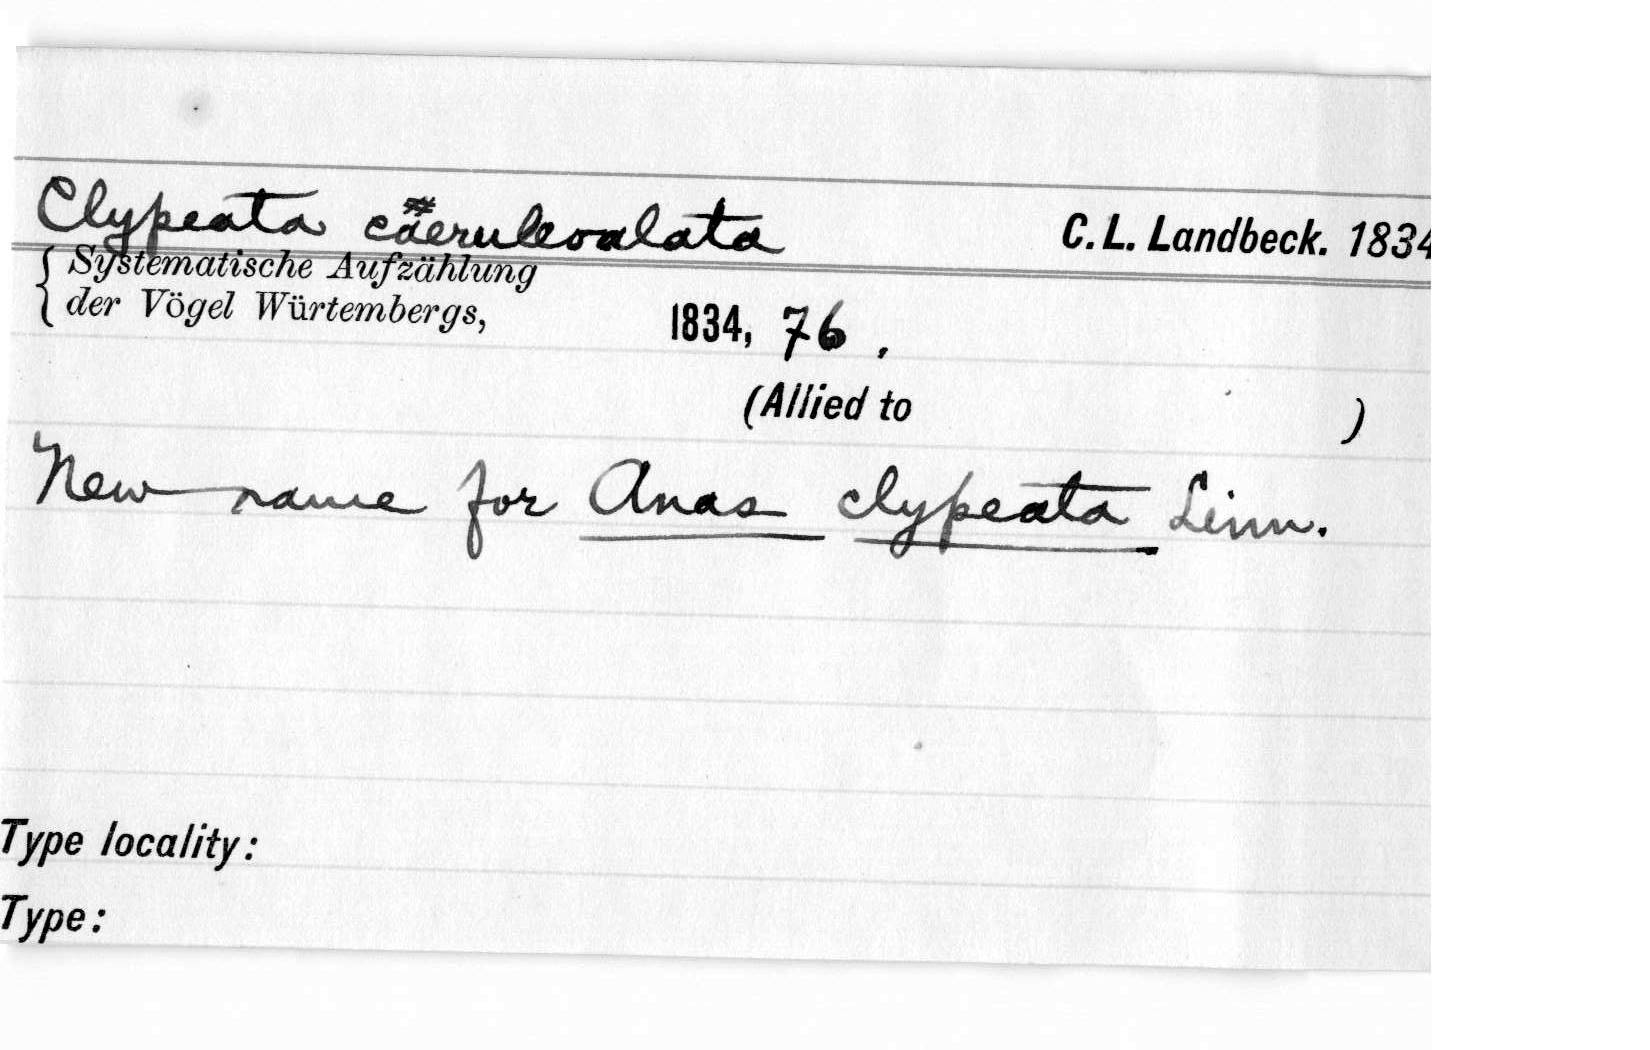 Clypeata caeruleoalata C. L. Landbeck. 1834
Systematische Aufzählung
der Vögel Würtembergs, 1834, 76.
(Allied to )
New name for Anas clypeata Linn.
Type locality:
Type: